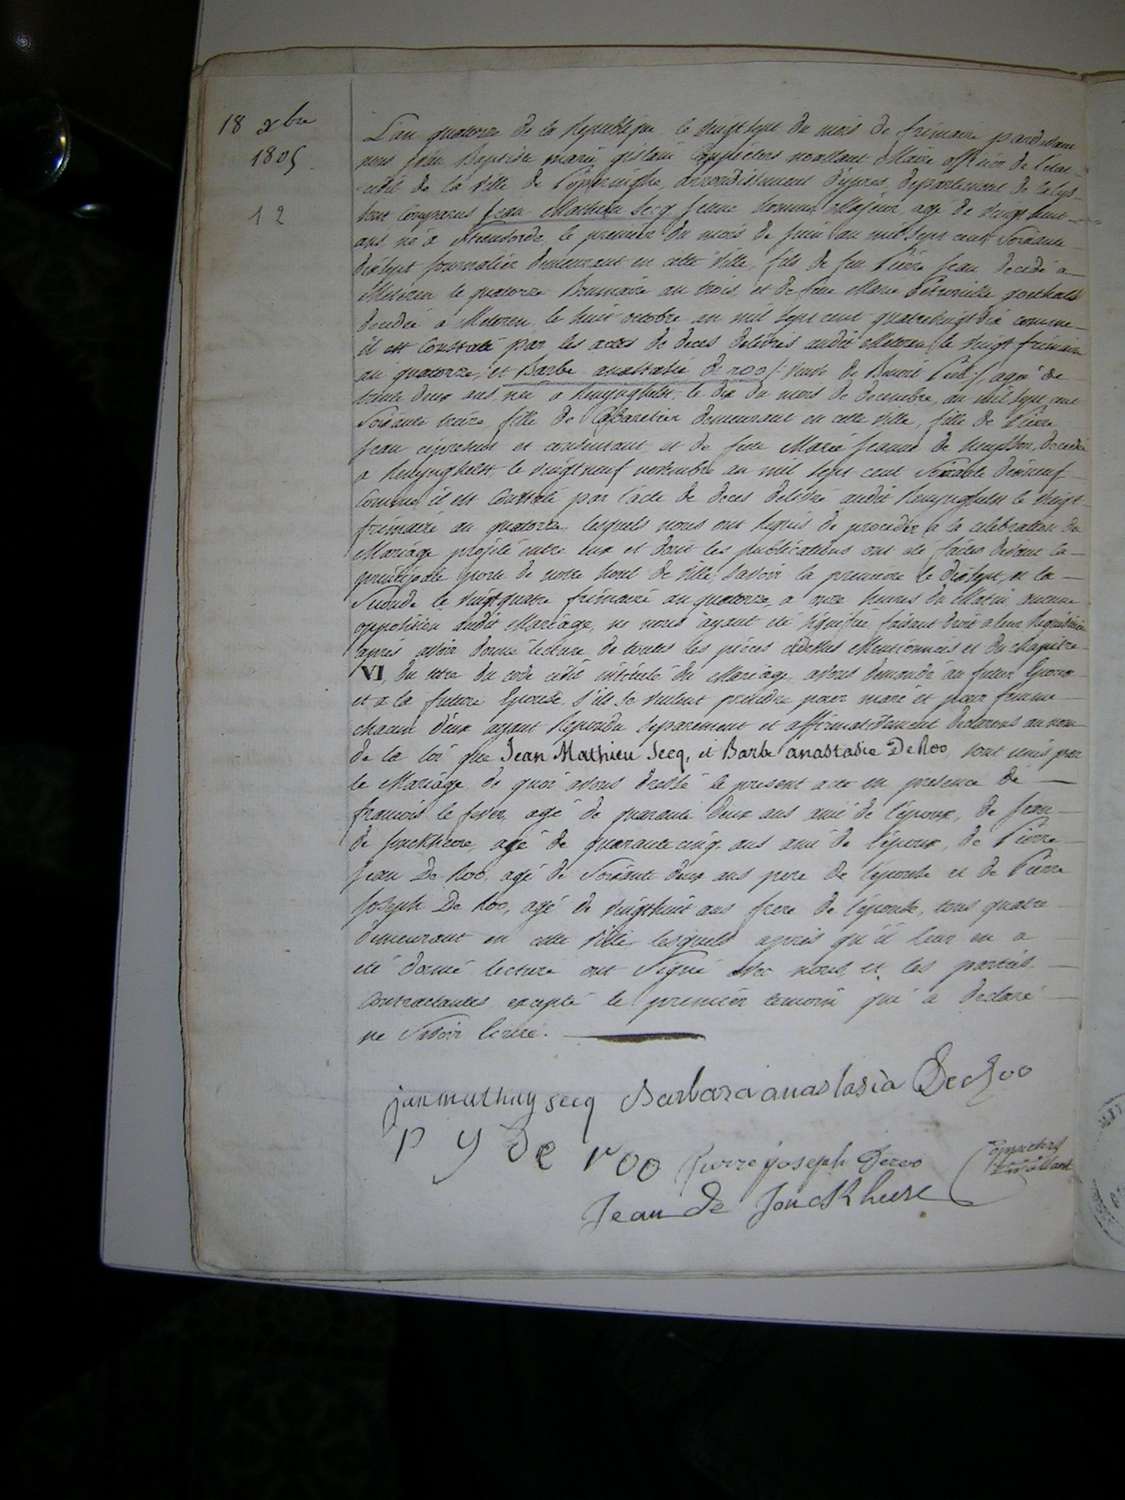 18 xbre
1805
12
L'an quatorze de la Republique le vingt sept du mois de frimaire pardevant
nous jean Baptiste marie gislain maire officier de l'etat
civil de la ville de Poperinghe, arrondissement d'ypres, departement de la Lys
sont Comparus Jean Mathieu Secq jeune homme Majeur, agé de vingt huit
ans né à le premier du mois de juin an mil sept cent soixante
dixsept journalier demeurant en cette ville, fils de feu Pierre jean decedé a
Meteren le quatorze Brumaire an trois, et de feue Marie Petronille goethals
decedée à Meteren le huit octobre an mil sept cent quatrevingt dix comme
il est Constaté par les actes de deces delivrés audit Meteren le vingt frimaire
an quatorze, et Barbe anastasie de roo / veuve de Benoit / agée de
trente deux ans née a Renynghelst le dix du mois de decembre, an mil sept cent
soixante treize fille de Cabaretier demeurant en cette ville, fille de Pierre
jean cipresent et consentant et de feue Marie jeanne de decedée
a Renynghelst le vingt neuf novembre an mil sept cent soixante dixneuf
Comme il est Constaté par l'acte de deces delivré audit Renynghelst le vingt
frimaire an quatorze, lesquels nous ont requis de proceder a la celebration du
Mariage projeté entre eux et dont les publications ont été faites devant la
principale porte de notre hotel de ville, savoir la premiere le dixsept, et la
Seconde le vingt quatre frimaire an quatorze, a onze heures du Matin aucune
opposition audit Mariage, ne nous ayant été signifiée faisant droit a leur requisition
après avoir donné lecture de toutes les pièces cidessus Mentionnées et du chapitre
VI du titre du code civil intitulé du Mariage avons demandé au futur Epoux
et a la future Epouse s'ils se veulent prendre pour mari et pour femme
chacun d'eux ayant repondu separement et affirmativement declarons au nom
de la loi que Jean Mathieu Secq, et Barbe anastasie De Roo, sont unis par
le Mariage de quoi avons dressé le present acte en presence de
francois le agé de quarante deux ans ami de l'epoux, de jean
de jonckheere, agé de quarante cinq ans ami de l'epoux, de Pierre
jean De Roo, agé de Soixante deux ans pere de l'epouse et de Pierre
joseph De Roo, agé de vingthuit ans frere de l'epouse, tous quatre
demeurant en cette ville lesquels après qu'il leur en a
été donné lecture ont Signé avec nous et les parties
Contractantes excepté le premier temoin qui a declaré
ne Savoir ecrire.
janmathuy secq Barbara anastasia De Roo
P y De roo Pierre joseph Deroo
Jean De Jonckheere